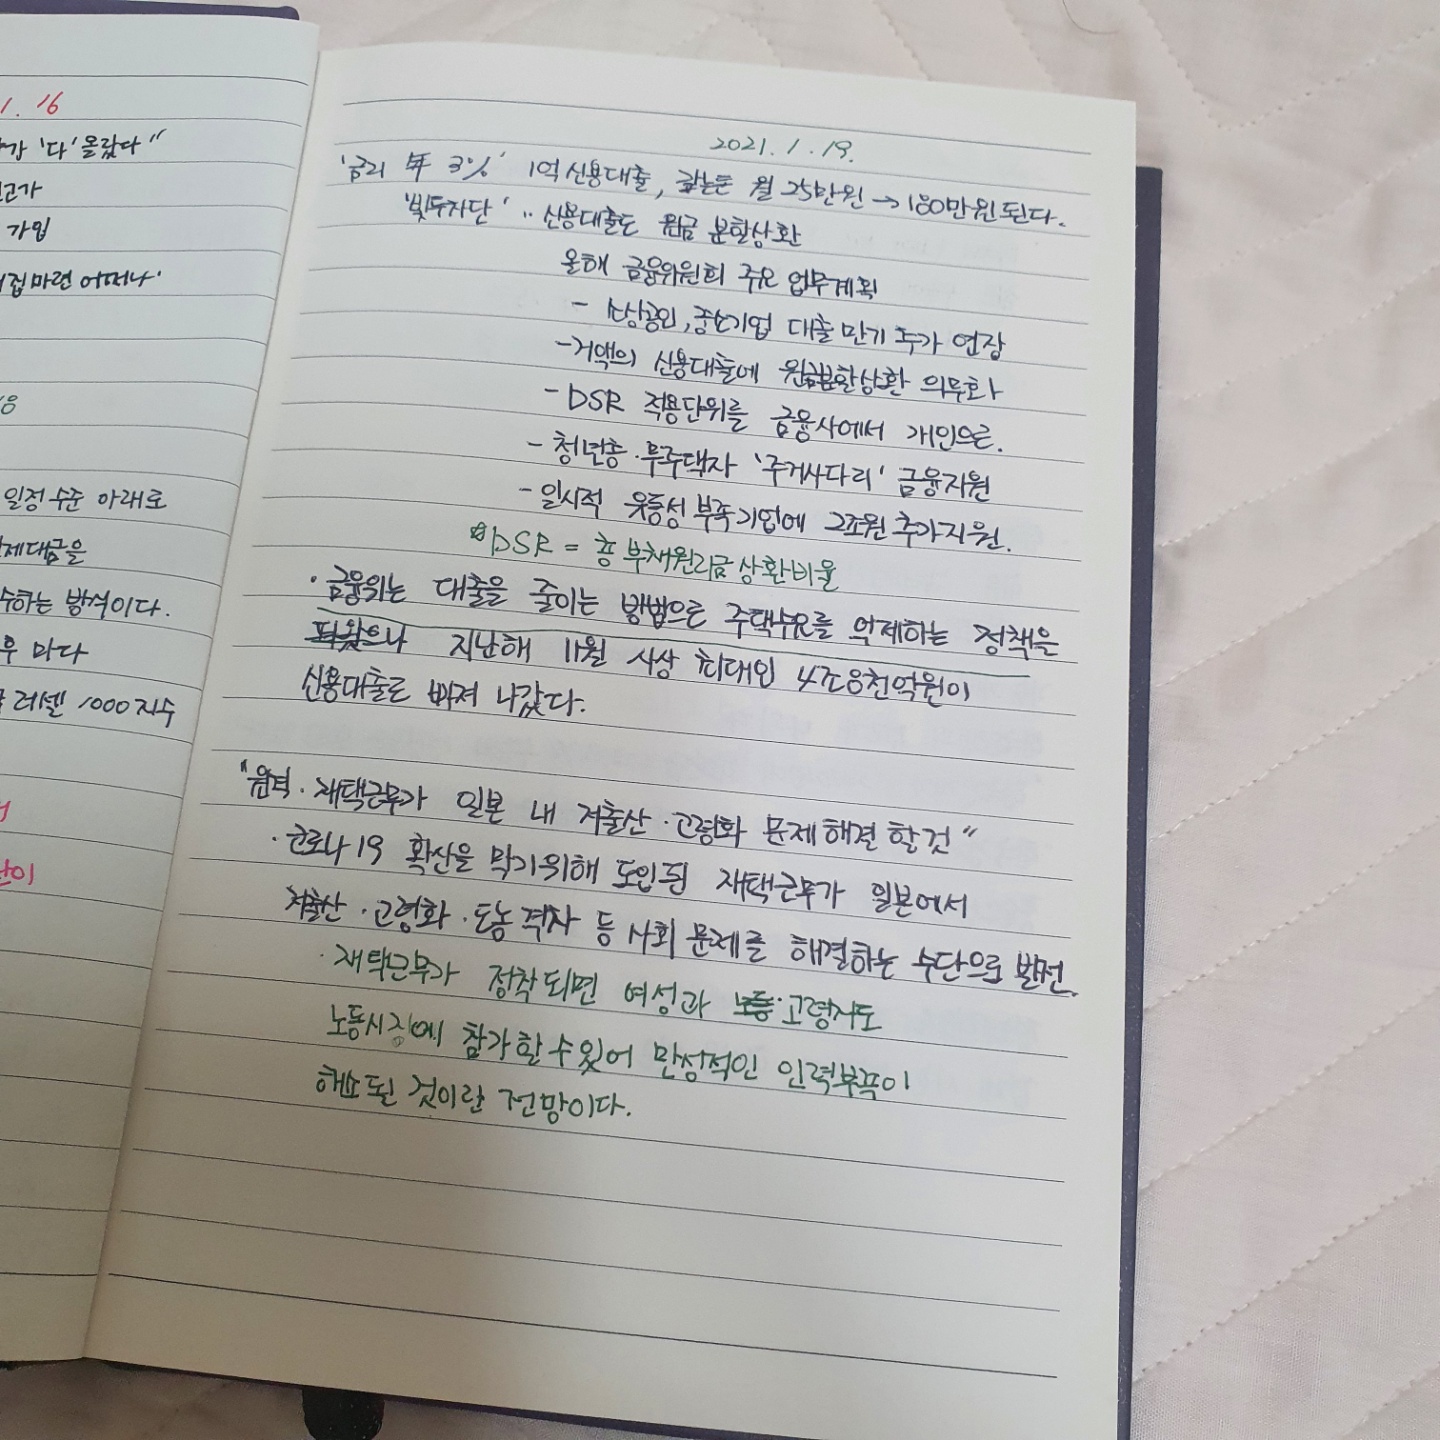 1. 16
가 '다' 올랐다"
고가
가입
집마련 어떠나'
18
일정 수준 아래로
제대금을
수하는 방식이다.
우 마다
러셀 1000지수
이
2021. 1. 19.
'금리 年 3%' 1억 신용대출, 갚는돈 월 25만원 → 180만원 된다.
'빚투차단' ‥ 신용대출도 원금 분할상환
올해 금융위원회 주요 업무계획
- 소상공인, 중소기업 대출 만기 추가 연장
- 거액의 신용대출에 원금분할상환 의무화
- DSR 적용단위를 금융사에서 개인으로.
- 청년층·무주택자 '주거사다리' 금융지원
- 일시적 유동성 부족 기업에 2조원 추가지원.
※DSR = 총 부채원리금상환비율
· 금융위는 대출을 줄이는 방법으로 주택수요를 억제하는 정책을
펴왔으나 지난해 11월 사상 최대인 4조8천억원이
신용대출로 빠져 나갔다.
"원격·재택근무가 일본 내 저출산·고령화 문제 해결 할 것"
· 코로나19 확산을 막기위해 도입된 재택근무가 일본에서
저출산·고령화·도농격차 등 사회 문제를 해결하는 수단으로 발전.
· 재택근무가 정착되면 여성과 노동·고령자도
노동시장에 참가할 수 있어 만성적인 인력부족이
해소될 것이란 전망이다.